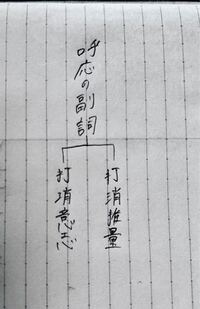 呼応の副詞
打消推量
打消意志